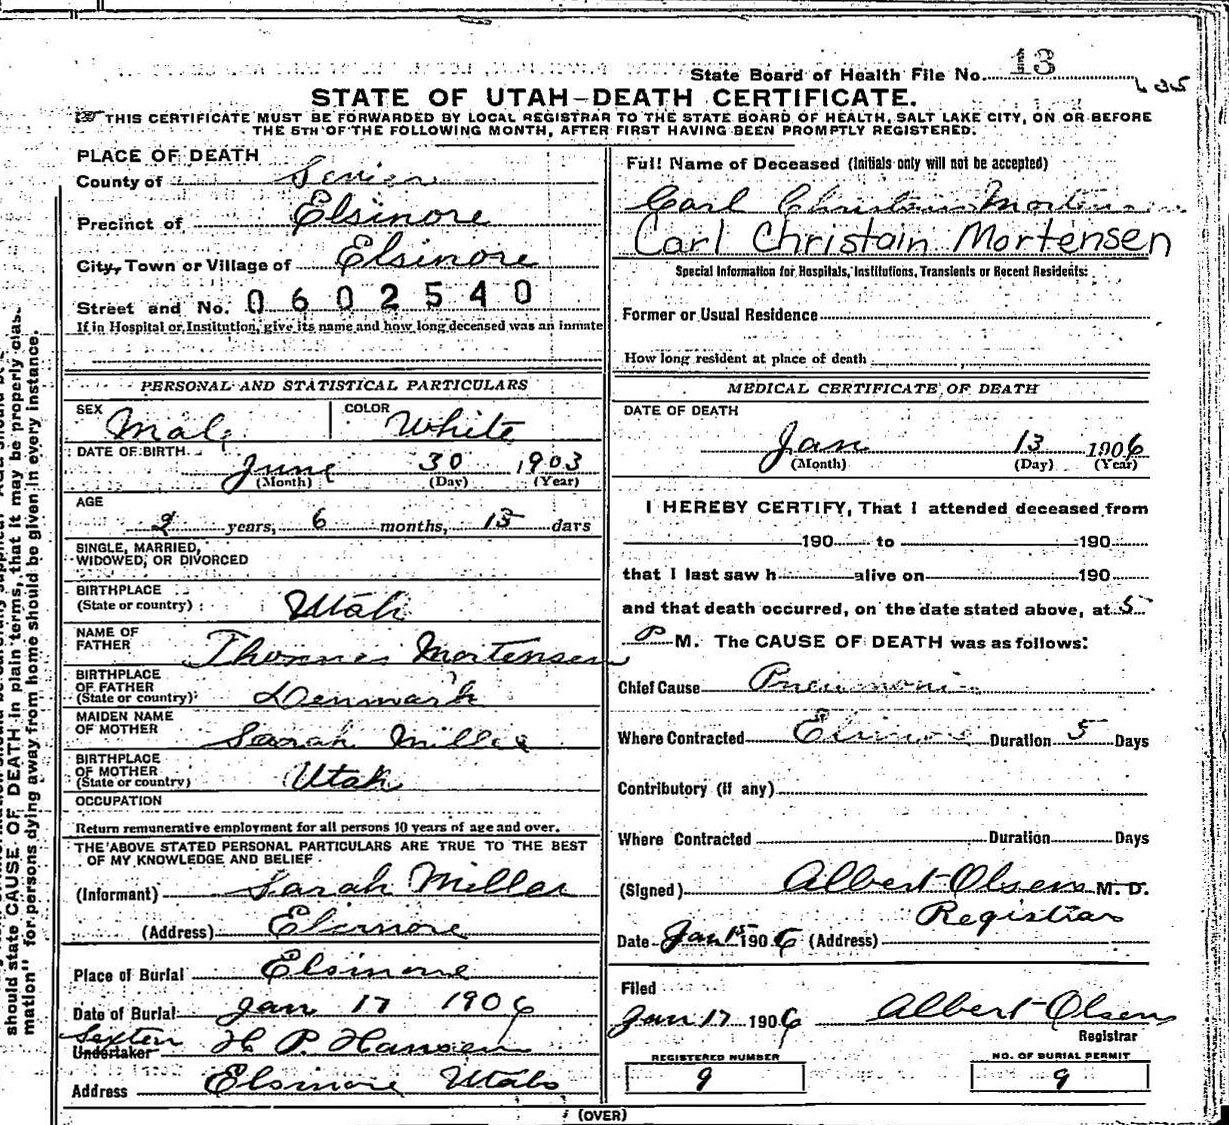 State Board of Health File No. 13
635
STATE OF UTAH-DEATH CERTIFICATE.
THIS CERTIFICATE MUST BE FORWARDED BY LOCAL REGISTRAR TO THE STATE BOARD OF HEALTH, SALT LAKE CITY, ON OR BEFORE
THE 5TH OF THE FOLLOWING MONTH, AFTER FIRST HAVING BEEN PROMPTLY REGISTERED.
PLACE OF DEATH
County of Sevier
Precinct of Elsinore
City, Town or Village of Elsinore
Street and No. 0602540
If in Hospital or Institution, give its name and how long deceased was an inmate
PERSONAL AND STATISTICAL PARTICULARS
SEX Male COLOR White
DATE OF BIRTH June 30 1903
(Month) (Day) (Year)
AGE
2 years, 6 months, 15 days
SINGLE, MARRIED,
WIDOWED, OR DIVORCED
BIRTHPLACE
(State or country) Utah
NAME OF
FATHER Thomas Mortensen
BIRTHPLACE
OF FATHER
(State or country) Denmark
MAIDEN NAME
OF MOTHER Sarah Miller
BIRTHPLACE
OF MOTHER
(State or country) Utah
OCCUPATION
Return remunerative employment for all persons 10 years of age and over.
THE ABOVE STATED PERSONAL PARTICULARS ARE TRUE TO THE BEST
OF MY KNOWLEDGE AND BELIEF
(Informant) Sarah Miller
(Address) Elsinore
Place of Burial Elsinore
Date of Burial Jan 17 1906
Sexton
Undertaker H P. Hansen
Address Elsinore Utah
Full Name of Deceased (Initials only will not be accepted)
Carl Christain Mortensen
Carl Christain Mortensen
Special Information for Hospitals, Institutions, Transients or Recent Residents:
Former or Usual Residence
How long resident at place of death
MEDICAL CERTIFICATE OF DEATH
DATE OF DEATH
Jan 13 1906
(Month) (Day) (Year)
I HEREBY CERTIFY, That I attended deceased from
190 to 190
that I last saw h alive on 190
and that death occurred, on the date stated above, at 5
P M. The CAUSE OF DEATH was as follows:
Chief Cause Pneumonia
Where Contracted Elsinore Duration 5 Days
Contributory (if any)
Where Contracted Duration Days
(Signed) Albert Olsen M. D.
Registrar
Date Jan 1906 (Address)
Filed
Jan 17 1906 Albert Olsen
Registrar
REGISTERED NUMBER
9
NO. OF BURIAL PERMIT
9
(OVER)
should state CAUSE OF DEATH in plain terms, that it may be properly clas
mation" for persons dying away from home should be given in every instance.